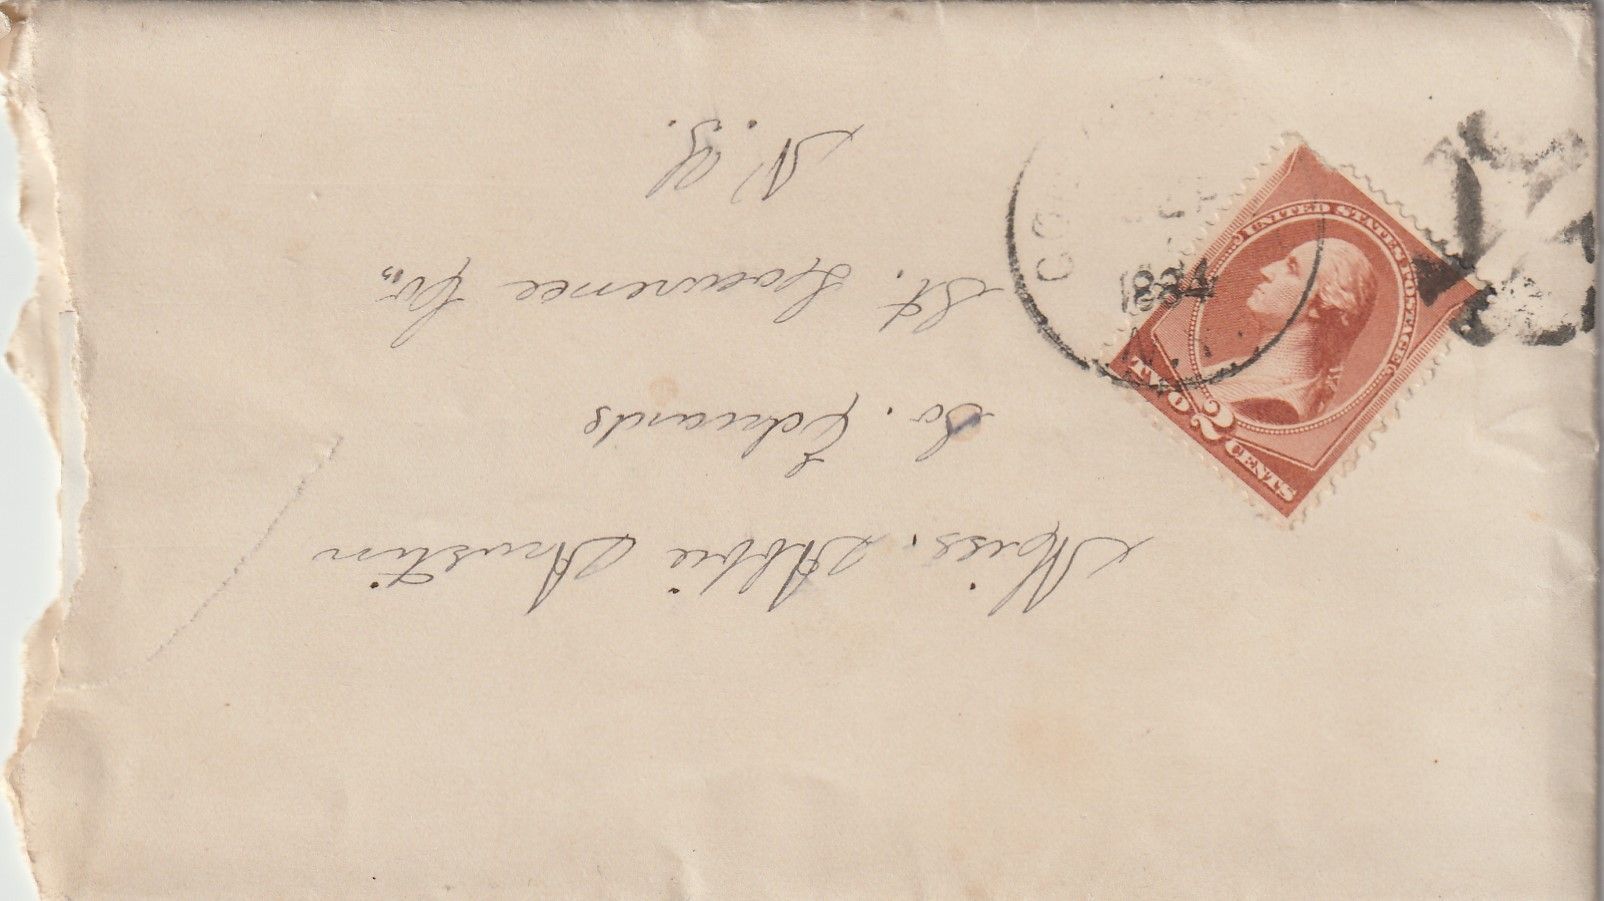 Miss. Abbie Austin
So. Edwards
St. Lawrence Co.,
N. Y.
UNITED STATES POSTAGE
TWO 2 CENTS
1884